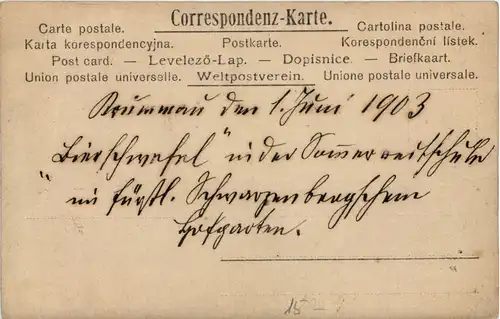 Correspondenz-Karte.
Carte postale.
Cartolina postale.
Karta korespondencyjna.
Postkarte.
Korespondenční lístek.
Post card. — Levelező-Lap. — Dopisnice. — Briefkaart.
Union postale universelle. Weltpostverein. Unione postale universale.
Krummau den 1. Juni 1903
„Bierschwefel" in der Sommerreitschule
im fürstl. Schwarzenbergschem
Hofgarten.
15 -